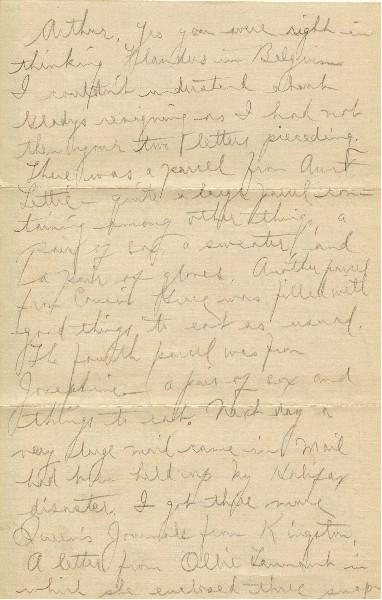 Arthur. Yes you were right in
thinking Flanders in Belgium
I couldn't understand about
Gladys resigning as I had not
then your two letters preceding.
There was a parcel from Aunt
Lettie – quite a large parcel con-
taining among other things, a
pair of sox, a sweater, and
a pair of gloves. Another parcel
from Cousin was filled with
good things to eat as usual.
The fourth parcel was from
Josephine – a pair of sox and
things to eat. Next day a
very large mail came in. Mail
had been held up by Halifax
disaster. I got three more
Queen's Journals from Kingston,
A letter from Ollie in
which she enclosed three snaps